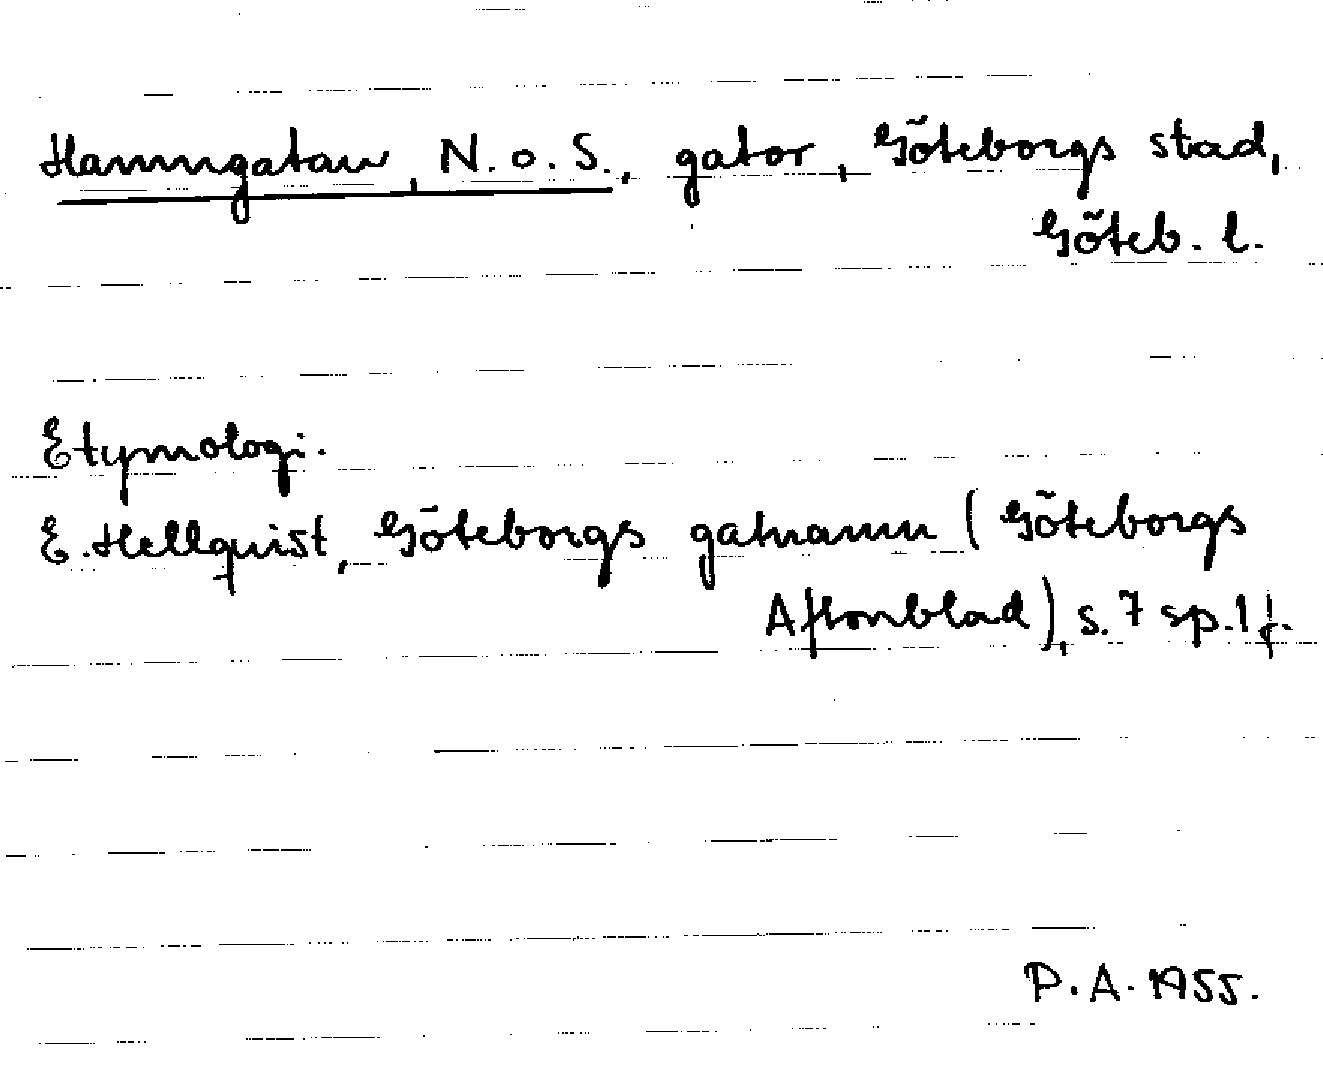 Hamngatan, N. o. S., gator, Göteborgs stad,
Göteb. l.
Etymologi.
E. Hellquist, Göteborgs gatnamn (Göteborgs
Aftonblad), s. 7 sp. 1 f.
P. A. 1955.